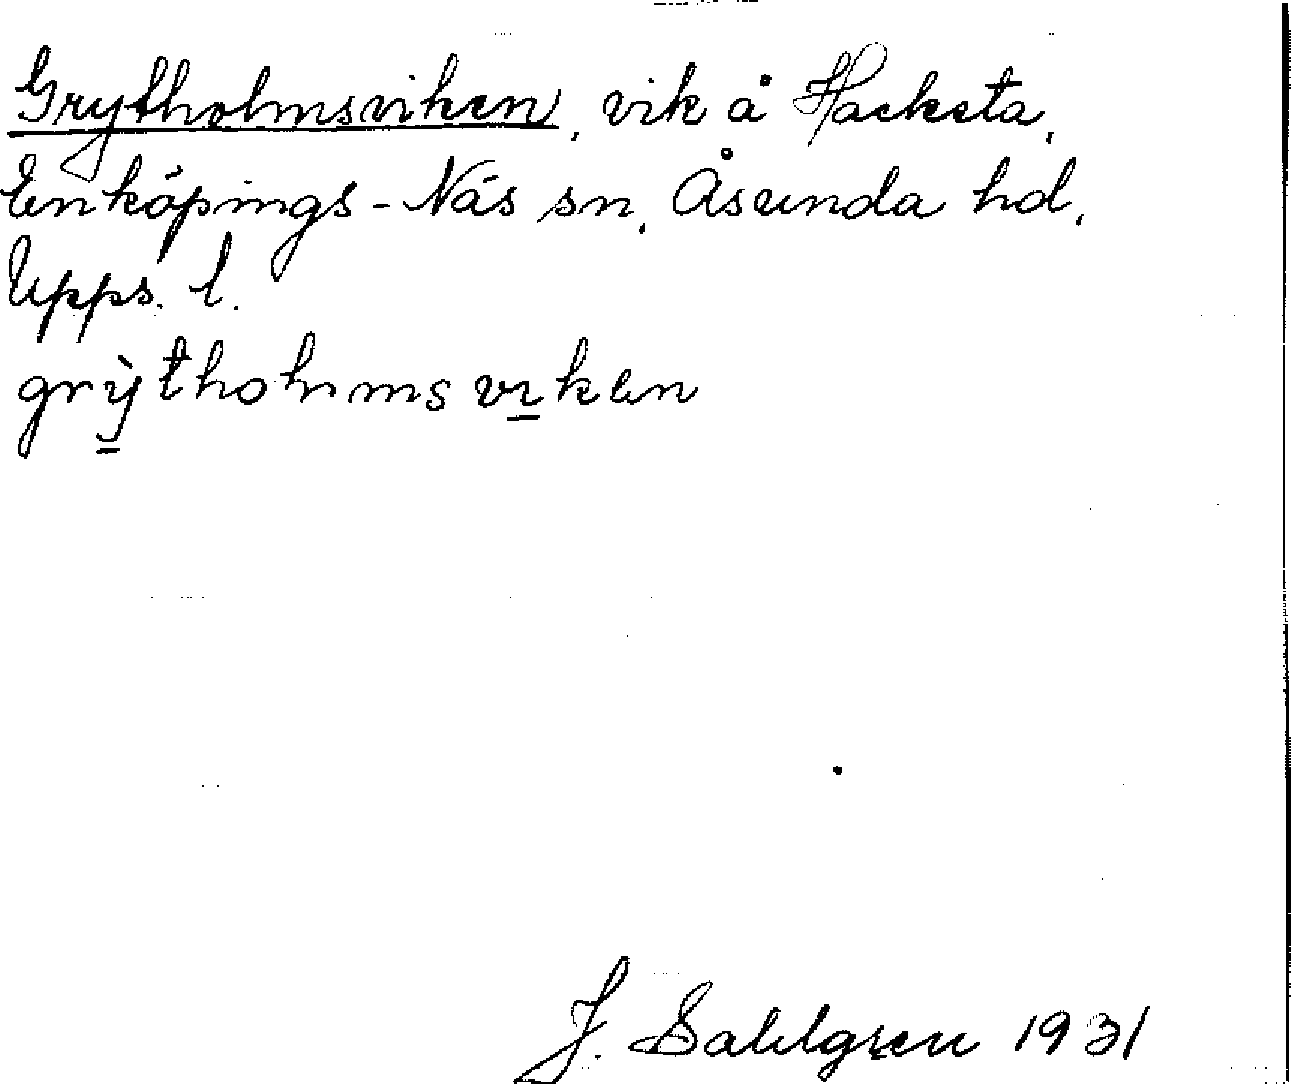 Grytholmsviken, vik å Hacksta,
Enköpings-Näs sn, Åsunda hd,
Upps. l.
grỳthohmsviken
J. Sahlgren 1931